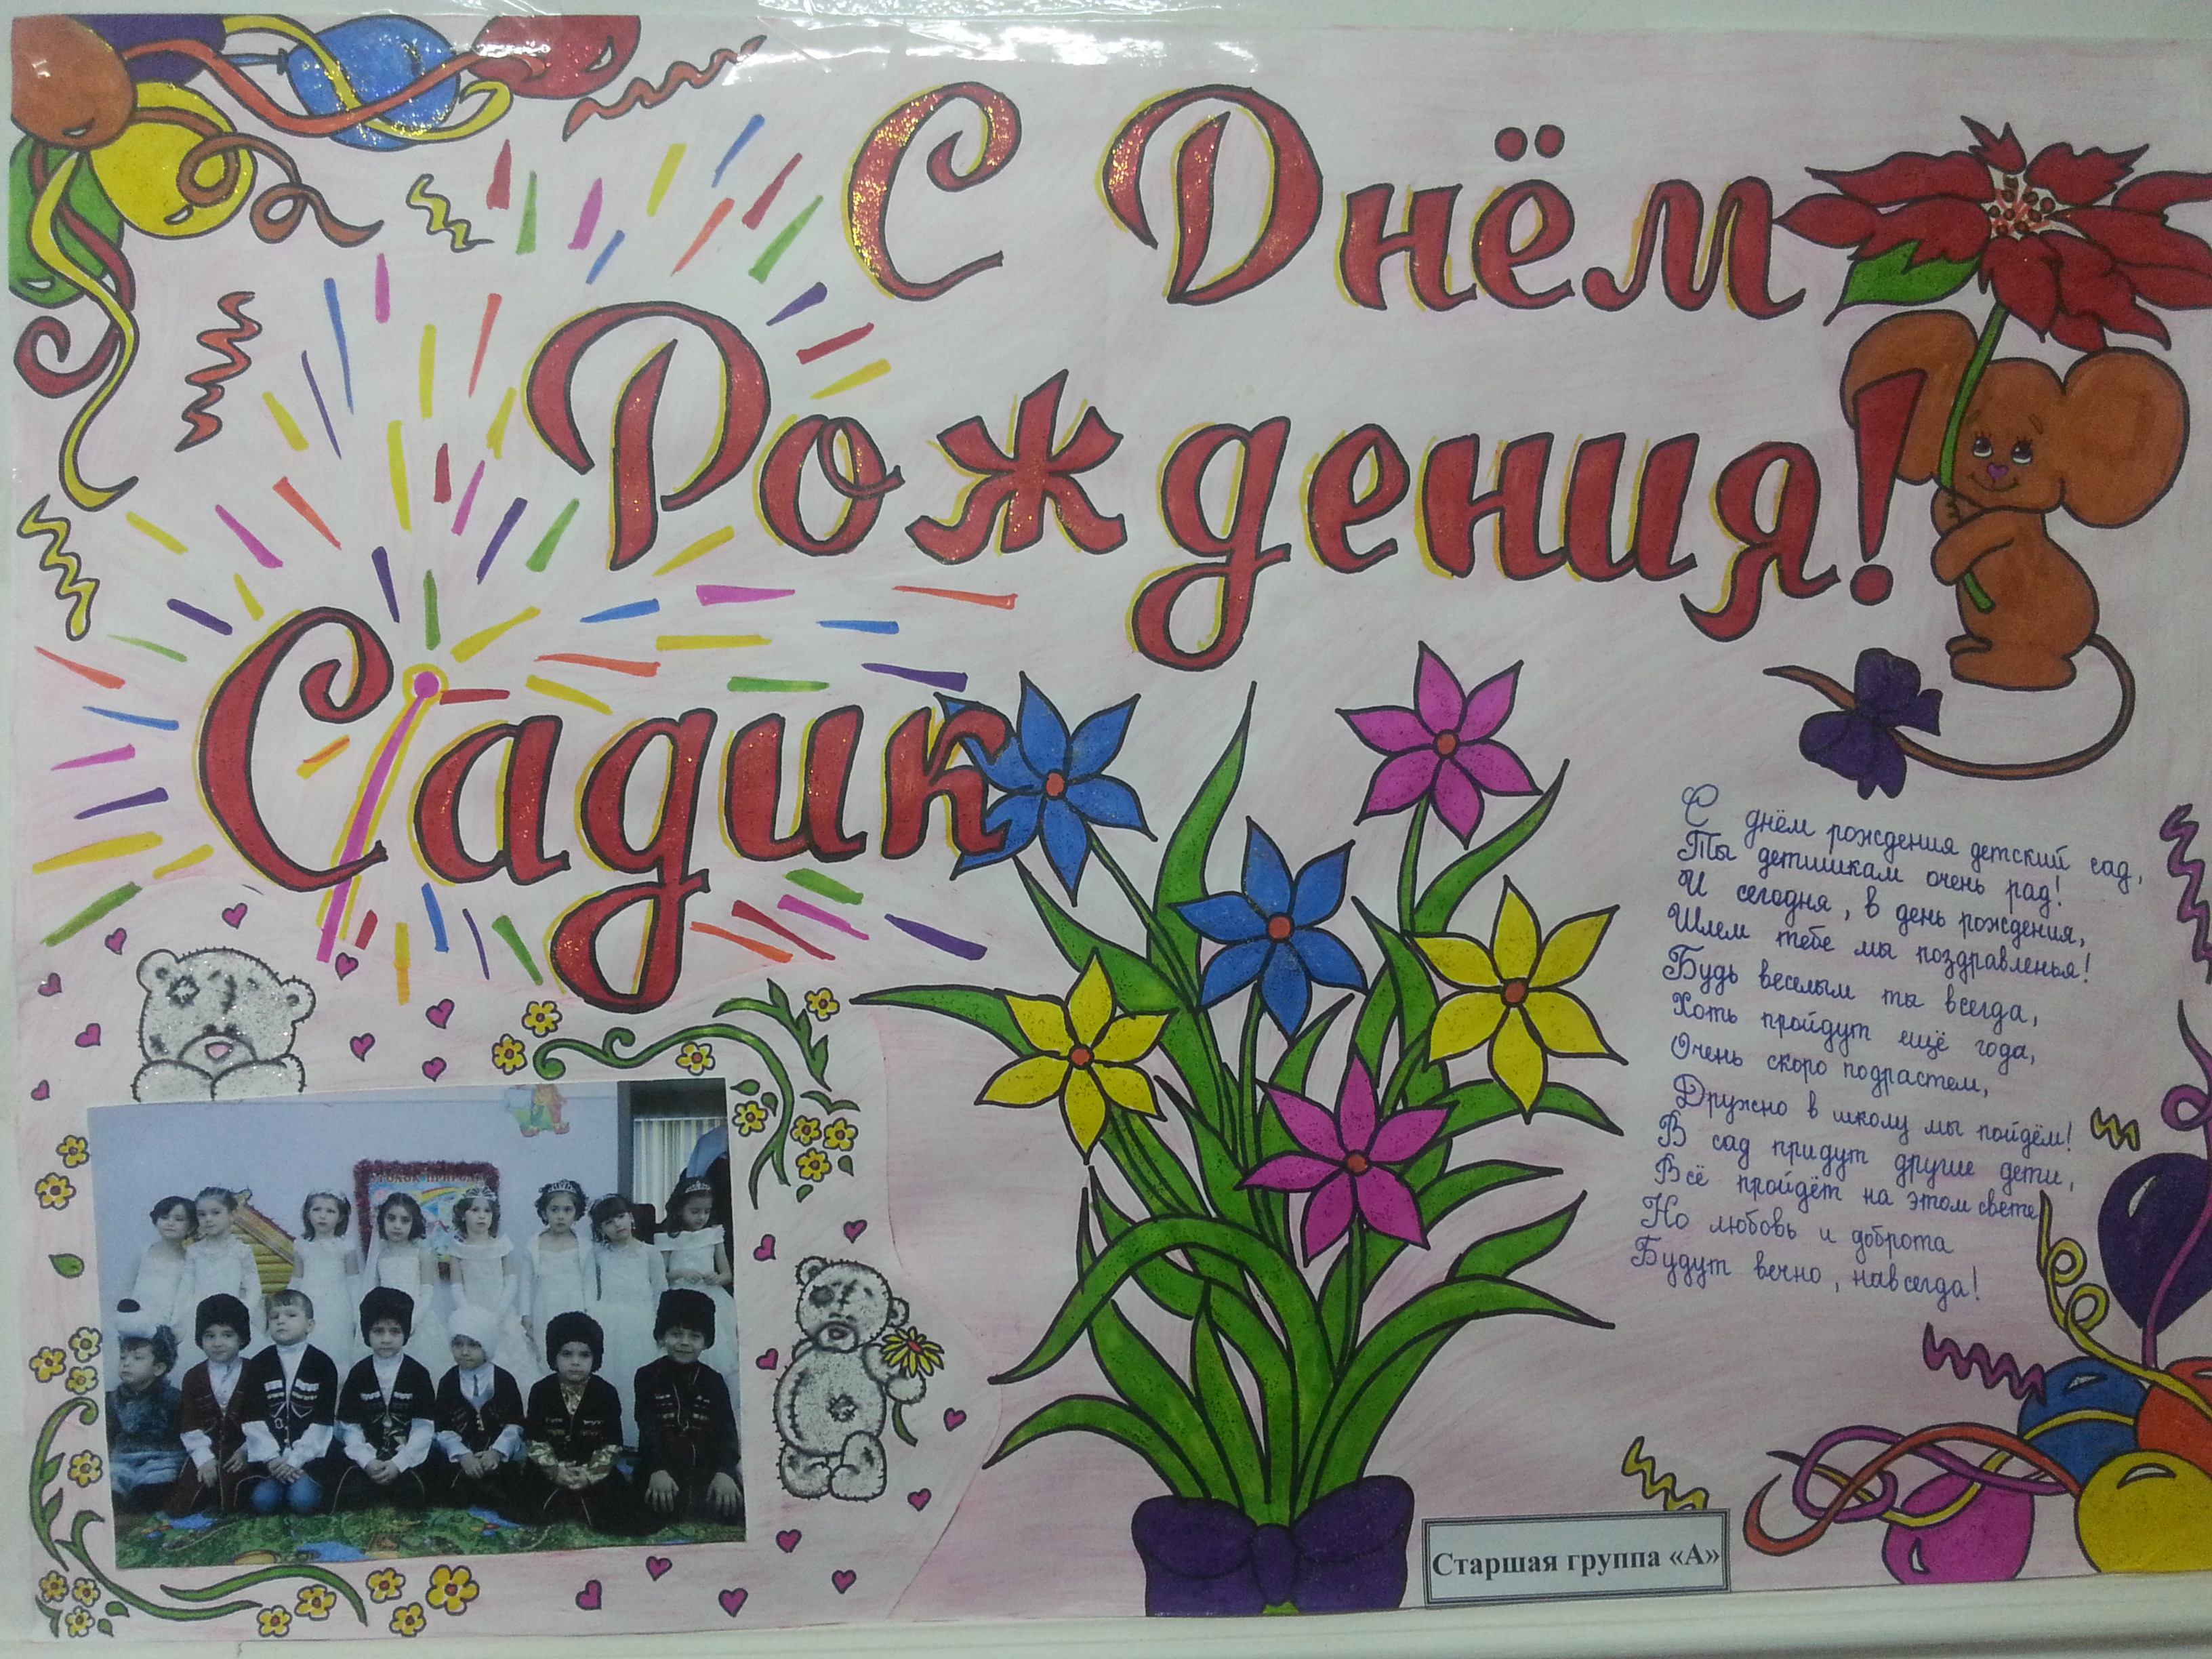 С Днём
Рождения!
Садик
С днём рождения детский сад,
Ты детишкам очень рад!
И сегодня, в день рождения,
Шлем тебе мы поздравленья!
Будь веселым ты всегда,
Хоть пройдут ещё года,
Очень скоро подрастем,
Дружно в школу мы пойдём!
В сад придут другие дети,
Всё пройдёт на этом свете
Но любовь и доброта
Будут вечно, навсегда!
Старшая группа «А»